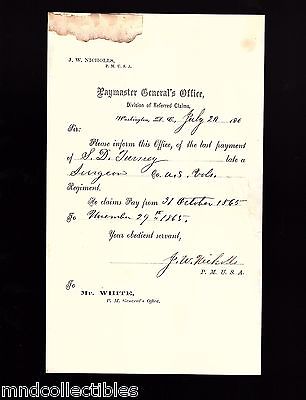 J. W. NICHOLLS,
P. M. U. S. A.
Paymaster General's Office,
Division of Referred Claims,
Washington, D. C., July 24 186
Sir:
Please inform this Office, of the last payment
of S. D. Turney late a
Surgeon Co. U.S. Vols.
Regiment.
He claims Pay from 31 October 1865
To November 29th 1865.
Your obedient servant,
J. W. Nicholls
P. M. U. S. A.
To
Mr. WHITE,
P. M. General's Office.
mndcollectibles